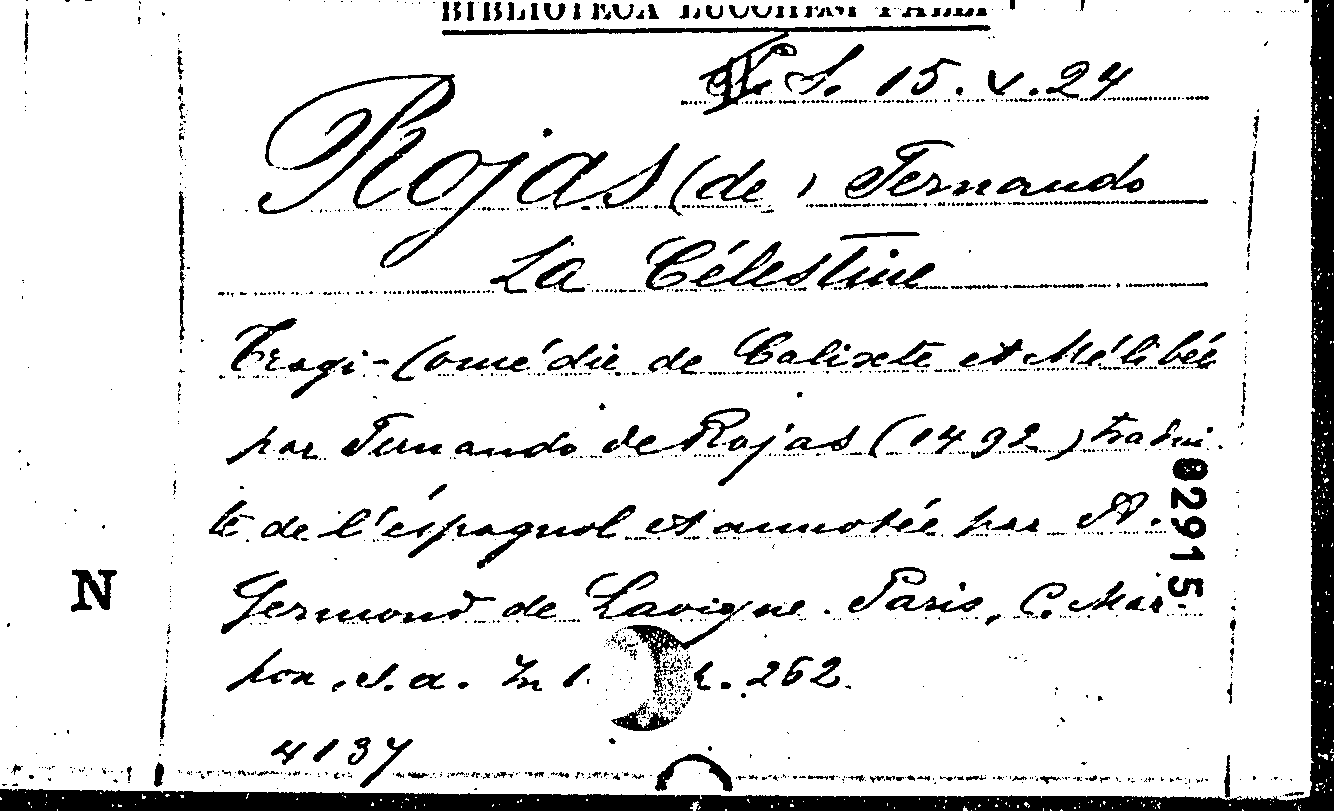 BIBLIOTECA LUCCHESI PALLI
S. 15.V.24
Rojas (de) Fernando
La Célestine
Tragi-Comédie de Calixte et Mélibée
par Fernando de Rojas (1492) tradui
te de l'éspagnol et annotée par A.
Germond de Lavigne. Paris, C. Mar
pon, s.a. In 1 262.
4137
N
02915